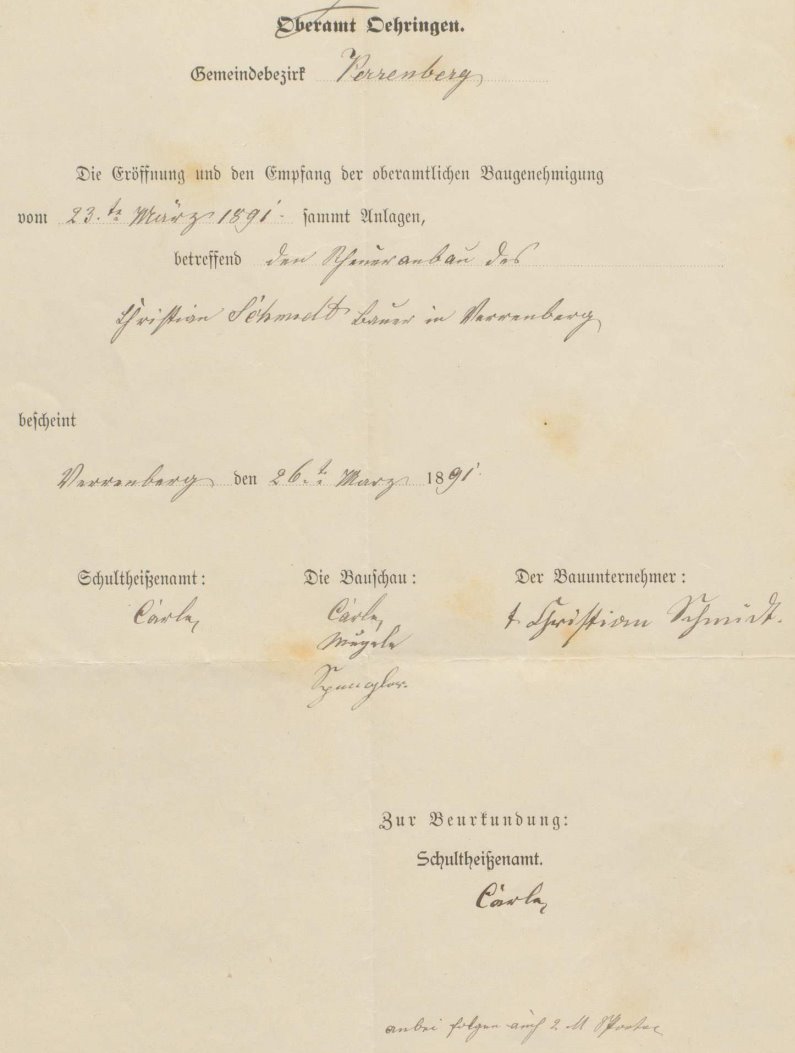 Oberamt Oehringen.
Gemeindebezirk Verrenberg
Die Eröffnung und den Empfang der oberamtlichen Baugenehmigung
vom 23.te März 1891. sammt Anlagen,
betreffend den Scheueranbau des
Christian Schmidt Bauer in Verrenberg
bescheint
Verrenberg den 26.te März 1891.
Schultheißenamt: Die Bauschau: Der Bauunternehmer:
Cärle, Cärle, t. Christian Schmidt.
Mugele
Spengler.
Zur Beurkundung:
Schultheißenamt.
Cärle,
anbei folgen auch 2 M Sportel